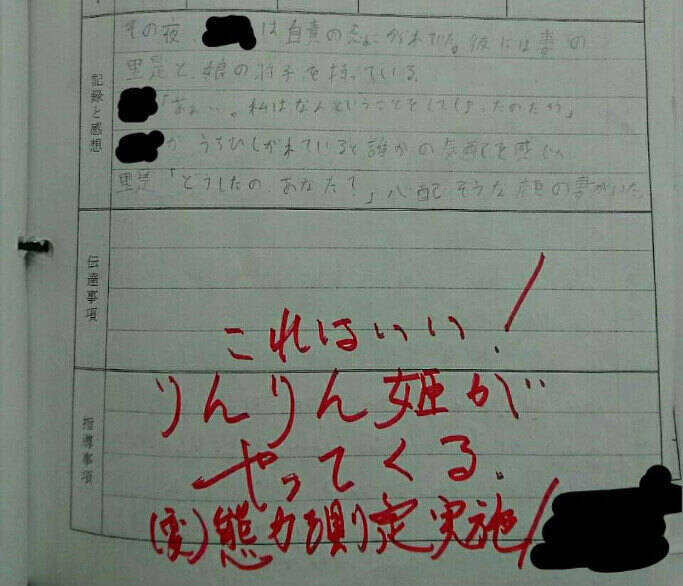 記録と感想
その夜、は自責の念にかられていた。彼には妻の
里是と、娘の子を持っている。
「あぁ…。私はなんということをしてしまったのだろう」
がうちひしがれていると誰かの気配を感じ
里是「どうしたの、あなた?」心配そうな顔の妻がいた。
伝達事項
これはいい!
指導事項
りんりん姫が
やってくる。
(変)態力測定実施!